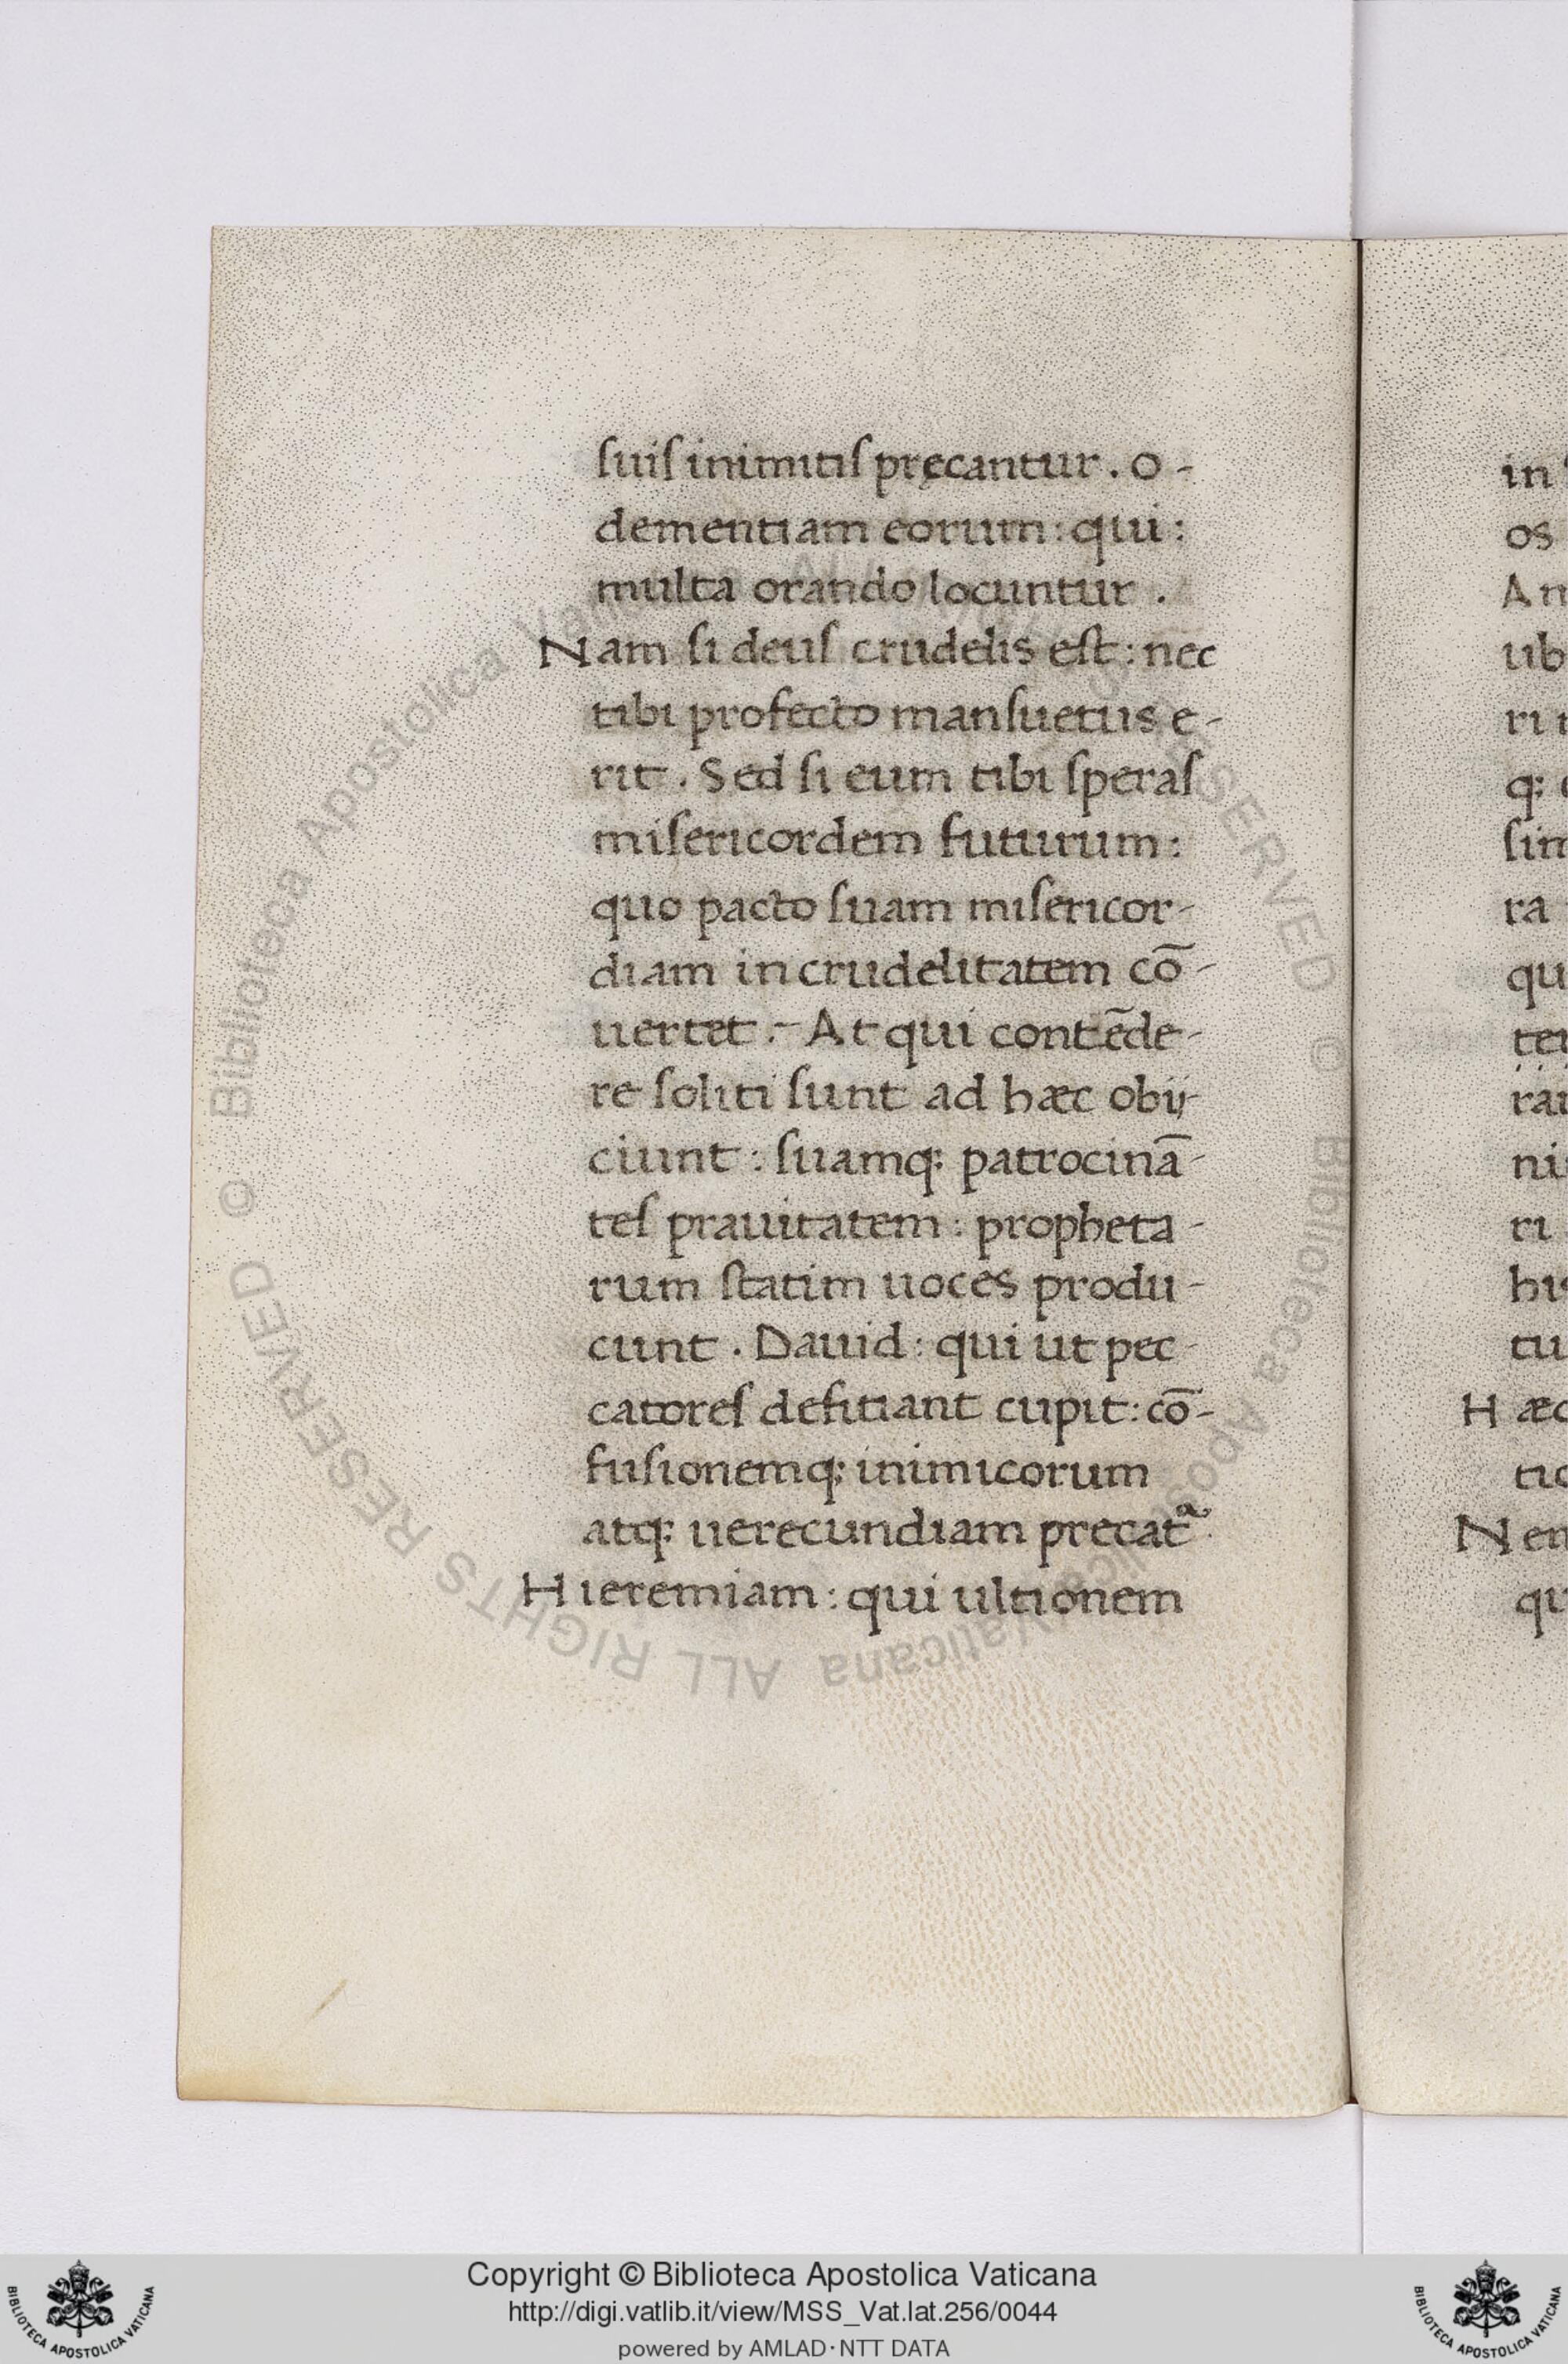 ſuiſ inimitiſ pręcantur . o -
dementiam eorum : qui :
multa orando locuntur .
Nam ſi deuſ crudelis eſt : nec
tibi profecto manſuetus e -
rit . Sed ſi eum tibi ſperaſ
miſericordem futurum :
quo pacto ſuam miſericor -
diam in crudelitatem cō -
uertet . - At qui contēde -
re ſoliti ſunt ad hæc obij -
ciunt : ſuamq; patrocinā -
teſ prauitatem : propheta -
rum ſtatim uoces produ -
cunt . Dauid : qui ut pec -
catoreſ defitiant cupit : cō -
fuſionemq; inimicorum
atq; uerecundiam precatᵃ
Hieremiam : qui ultionem
in
os
An
ub
ri
q;
ſim
ra
qu
ter
rar
ni
ri
hi
tu
Hæc
tio
Nem
qu
© Biblioteca Apostolica Vaticana ALL RIGHTS RESERVED
© Biblioteca Apostolica Vaticana ALL RIGHTS RESERVED
Copyright © Biblioteca Apostolica Vaticana
http://digi.vatlib.it/view/MSS_Vat.lat.256/0044
powered by AMLAD · NTT DATA
BIBLIOTECA APOSTOLICA VATICANA
BIBLIOTECA APOSTOLICA VATICANA